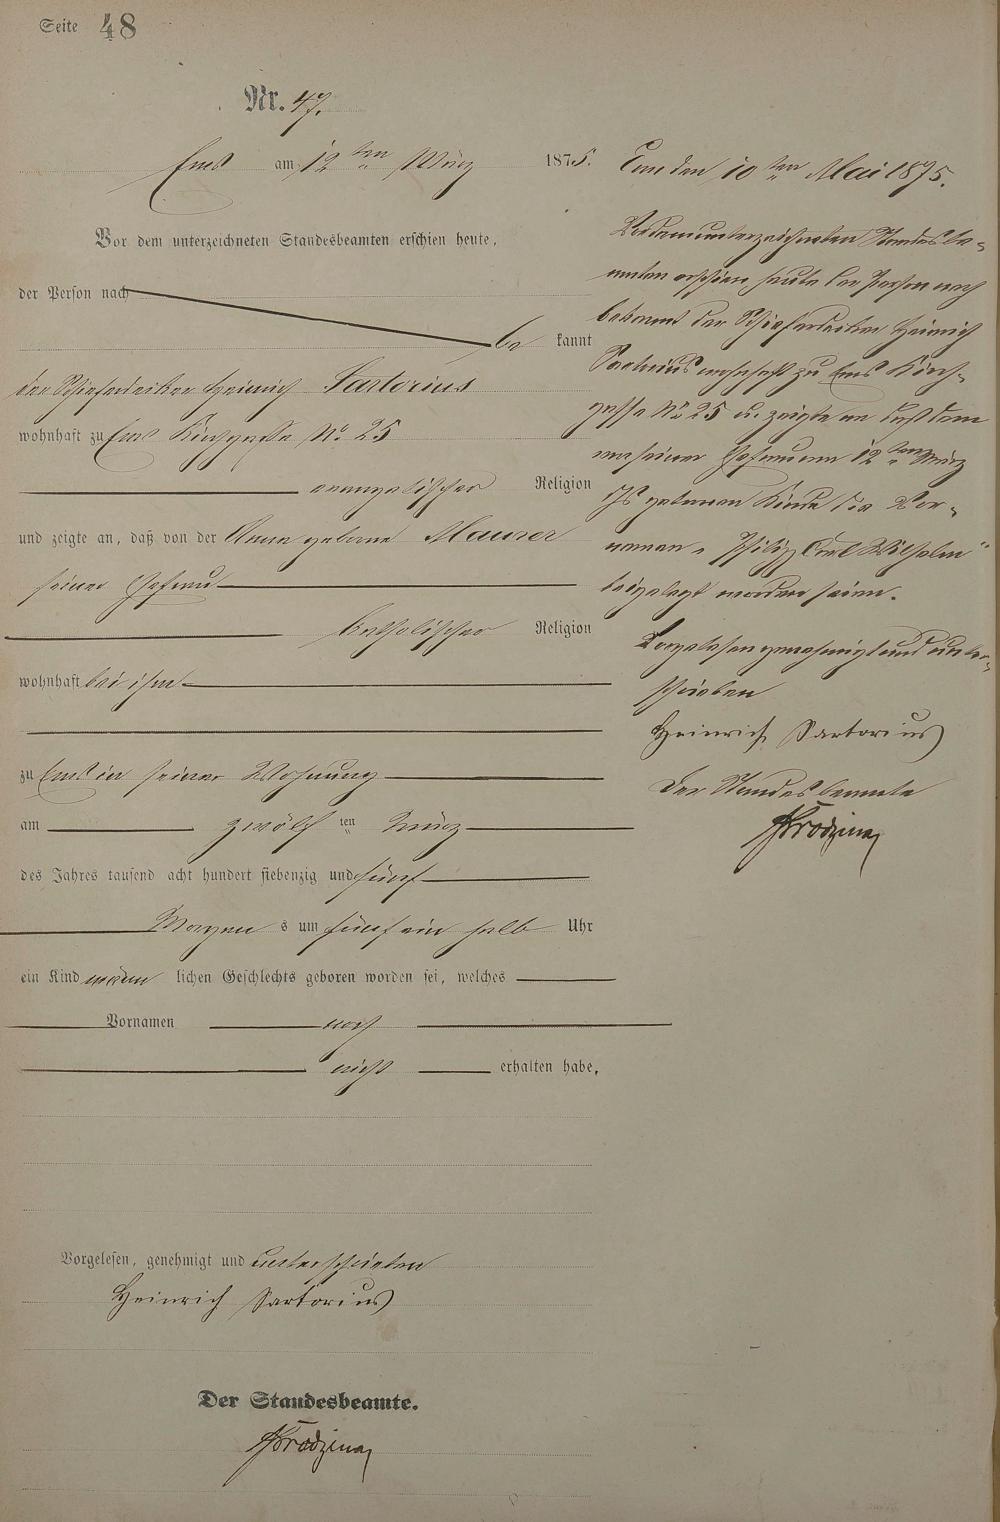 Seite 48
Nr. 47.
Ems am 12ten März 1875.
Vor dem unterzeichneten Standesbeamten erschien heute,
der Person nach
be kannt
der Schieferdecker Heinrich Sartorius
wohnhaft zu Ems Kirchgasse No. 25
evangelischer Religion
und zeigte an, daß von der Anna geborne Maurer
seiner Ehefrau
katholischer Religion
wohnhaft bei ihm
zu Ems in seiner Wohnung
am zwölf ten März
des Jahres tausend acht hundert siebenzig und fünf
Morgen s um fünf ein halb Uhr
ein Kind männ lichen Geschlechts geboren worden sei, welches
Vornamen noch
nicht erhalten habe.
Vorgelesen, genehmigt und unterschrieben
Heinrich Sartorius
Der Standesbeamte.
Ems den 10ten Mai 1875.
Vor dem unterzeichneten Standesbe-
amten erschien heute der Person nach
bekannt der Schieferdecker Heinrich
Sartorius wohnhaft zu Ems Kirch-
gasse No 25 u. zeigte an daß dem
von seiner Ehefrau am 12ten März
gebornen Kinde die Vor-
namen „Philipp Carl Wilhelm"
beigelegt worden seien.
Vorgelesen genehmigt und unter-
schrieben
Heinrich Sartorius
Der Standesbeamte